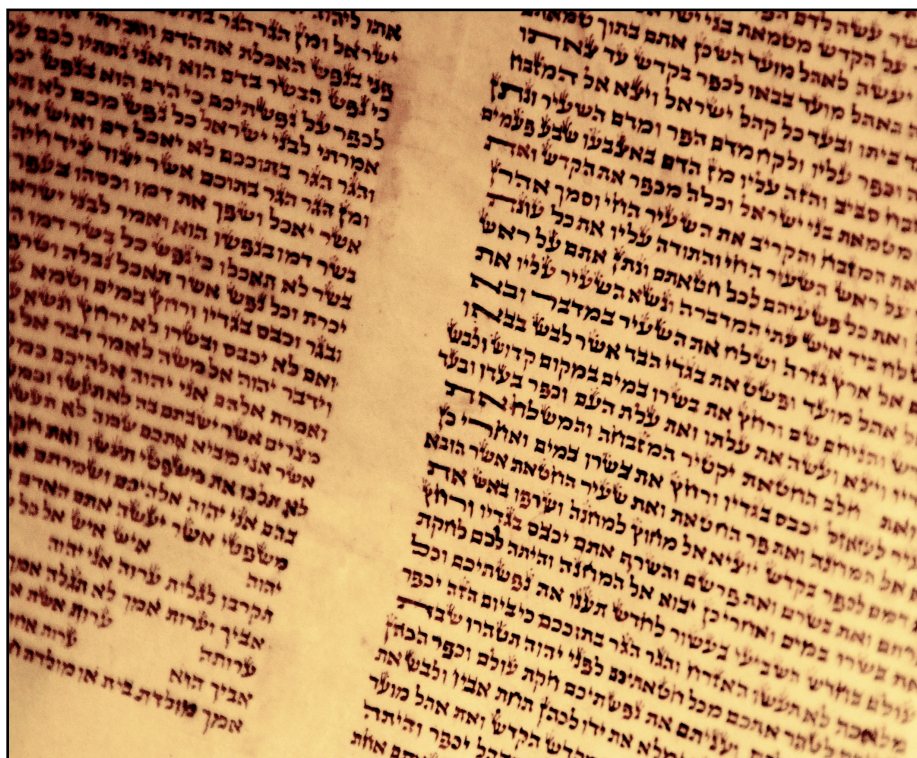 שר עשה לדם
על הקדש מטמאת בני
יעשה לאהל מועד השכן אתם בתוך טמאתם
באהל מועד בבאו לכפר בקדש עד צאתו
ביתו ובעד כל קהל ישראל ויצא אל המזבח
וכפר עליו ולקח מדם הפר ומדם השעיר ונתן
סביב והזה עליו מן הדם באצבעו שבע פעמים
מטמאת בני ישראל וכלה מכפר את הקדש ואת
המזבח והקריב את השעיר החי וסמך אהרן
על ראש השעיר החי והתודה עליו את כל עונת
ואת כל פשעיהם לכל חטאתם ונתן אתם על ראש
ביד איש עתי המדברה ונשא השעיר עליו את
אל ארץ גזרה ושלח את השעיר במדבר ובא
אהל מועד ופשט את בגדי הבד אשר לבש בבאו
והניחם שם ורחץ את בשרו במים במקום קדוש ולבש
ויצא ועשה את עלתו ואת עלת העם וכפר בעדו ובעד
ואת חלב החטאת יקטיר המזבחה והמשלח את
לעזאזל יכבס בגדיו ורחץ את בשרו במים ואחרי כן
אל המחנה ואת פר החטאת ואת שעיר החטאת אשר הובא
דמם לכפר בקדש יוציא אל מחוץ למחנה ושרפו באש את
ואת בשרם ואת פרשם והשרף אתם יכבס בגדיו ורחץ
את בשרו במים ואחרי כן יבוא אל המחנה והיתה לכם לחקת
עולם בחדש השביעי בעשור לחדש תענו את נפשתיכם וכל
מלאכה לא תעשו האזרח והגר הגר בתוככם כי ביום הזה יכפר
לטהר אתכם מכל חטאתיכם לפני יהוה תטהרו שבת
ועניתם את נפשתיכם חקת עולם וכפר הכהן
ימלא את ידו לכהן תחת אביו ולבש את
הקדש ואת אהל מועד
יכפר והיתה
אחת
אתו ליהוה
ישראל ומן הגר הגר בתוכם
פני בנפש האכלת את הדם והכרתי אתה
כי נפש הבשר בדם הוא ואני נתתיו לכם על
לכפר על נפשתיכם כי הדם הוא בנפש
אמרתי לבני ישראל כל נפש מכם לא
והגר הגר בתוככם לא יאכל דם ואיש איש
ומן הגר הגר בתוכם אשר יצוד ציד חיה
אשר יאכל ושפך את דמו וכסהו בעפר
בשר דמו בנפשו הוא ואמר לבני ישראל
בשר לא תאכלו כי נפש כל בשר דמו
יכרת וכל נפש אשר תאכל נבלה וטרפה
ובגר וכבס בגדיו ורחץ במים וטמא עד
ואם לא יכבס ובשרו לא ירחץ ונשא
וידבר יהוה אל משה לאמר דבר אל
ואמרת אלהם אני יהוה אלהיכם
מצרים אשר ישבתם בה לא תעשו
אשר אני מביא אתכם שמה לא תעשו
לא תלכו את משפטי תעשו ואת
בהם אני יהוה אלהיכם ושמרתם את
משפטי אשר יעשה אתם האדם
יהוה איש איש אל כל
תקרבו לגלות ערוה אני יהוה
אביך וערות אמך לא תגלה אמך
ערותה ערות אשת
אביך הוא ערות
אמך מולדת בית או מולדת